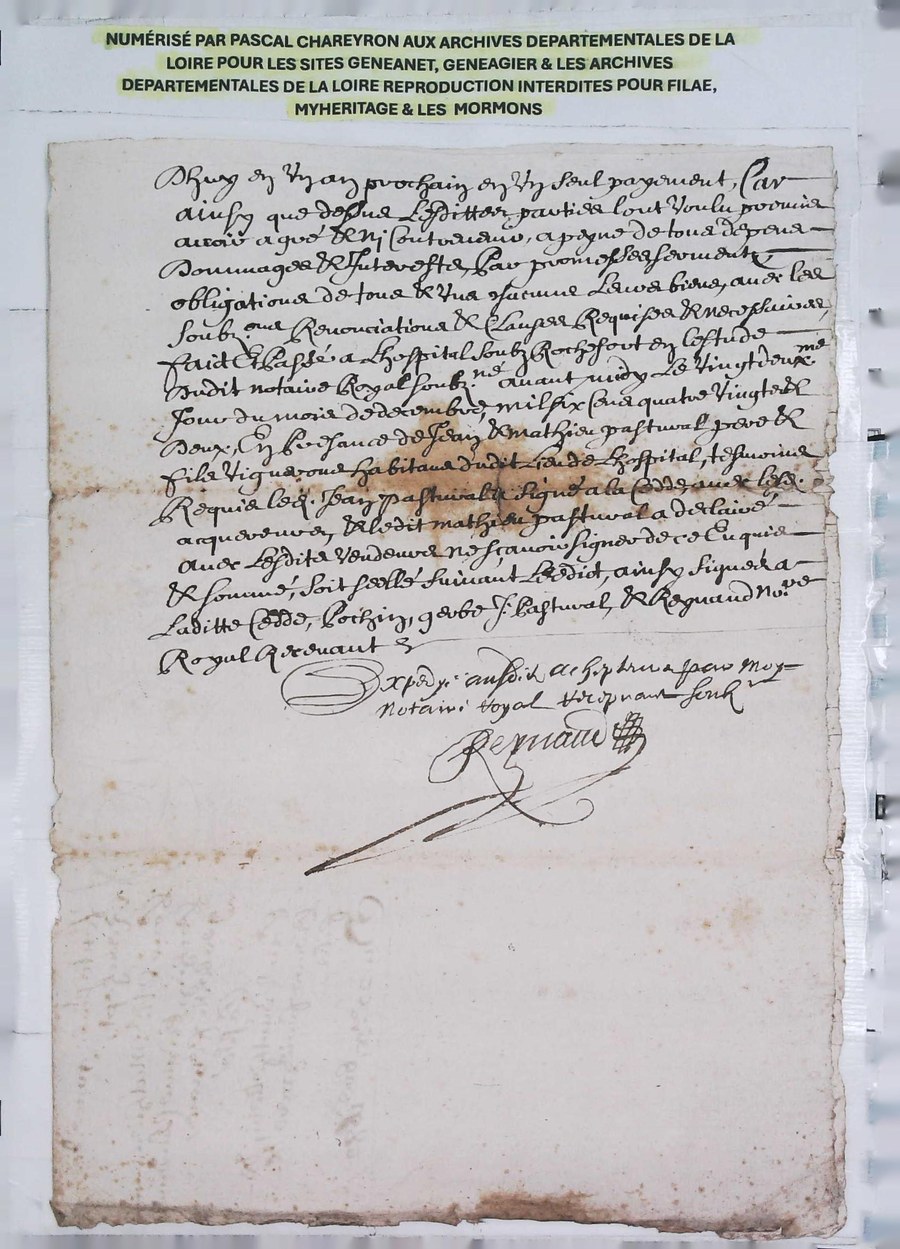 NUMÉRISÉ PAR PASCAL CHAREYRON AUX ARCHIVES DEPARTEMENTALES DE LA
LOIRE POUR LES SITES GENEANET, GENEAGIER & LES ARCHIVES
DEPARTEMENTALES DE LA LOIRE REPRODUCTION INTERDITES POUR FILAE,
MYHERITAGE & LES MORMONS
Dhuy en Un an prochain en Un seul payement, Car
ainsy que dessus Lesdittes parties lont Voulu promis
avoir a gré & ny Contrevenir, a peyne de tous depens
Dommages & Interests, Par promesses serments
obligations de tous & Uns chacuns Leurs biens, avec les
soubz.ons Renonciations & Clauses Requises & necessaires,
faict Et Passé a Lhospital soubz Rochefort en Lestude
Dudit notaire Royal soubz.né avant midy Le Vingtdeuxme
Jour du mois de decembre, mil six Cens quatre Vingts &
Deux, En presance de Jean & Mathieu pastural pere &
fils Vignerons habitans dudit Lieu de Lhospital, tesmoins
Requis led. Jean pasturals signé a la Cedde avec lesd.
acquereurs, & ledit mathieu pastural a declairé
avec Lesdits Vendeurs ne sçavoir signer de ce Enquis
& sommé, soit scellé suivant Lesdict, ainsy signés a
Laditte Cedde, Pochin, gerbe J. Pastural, & Regnaud No.re
Royal Recevant
Expedyé ausdit achepteurs par moy
Notaire royal recepvant soubz
Regnaud